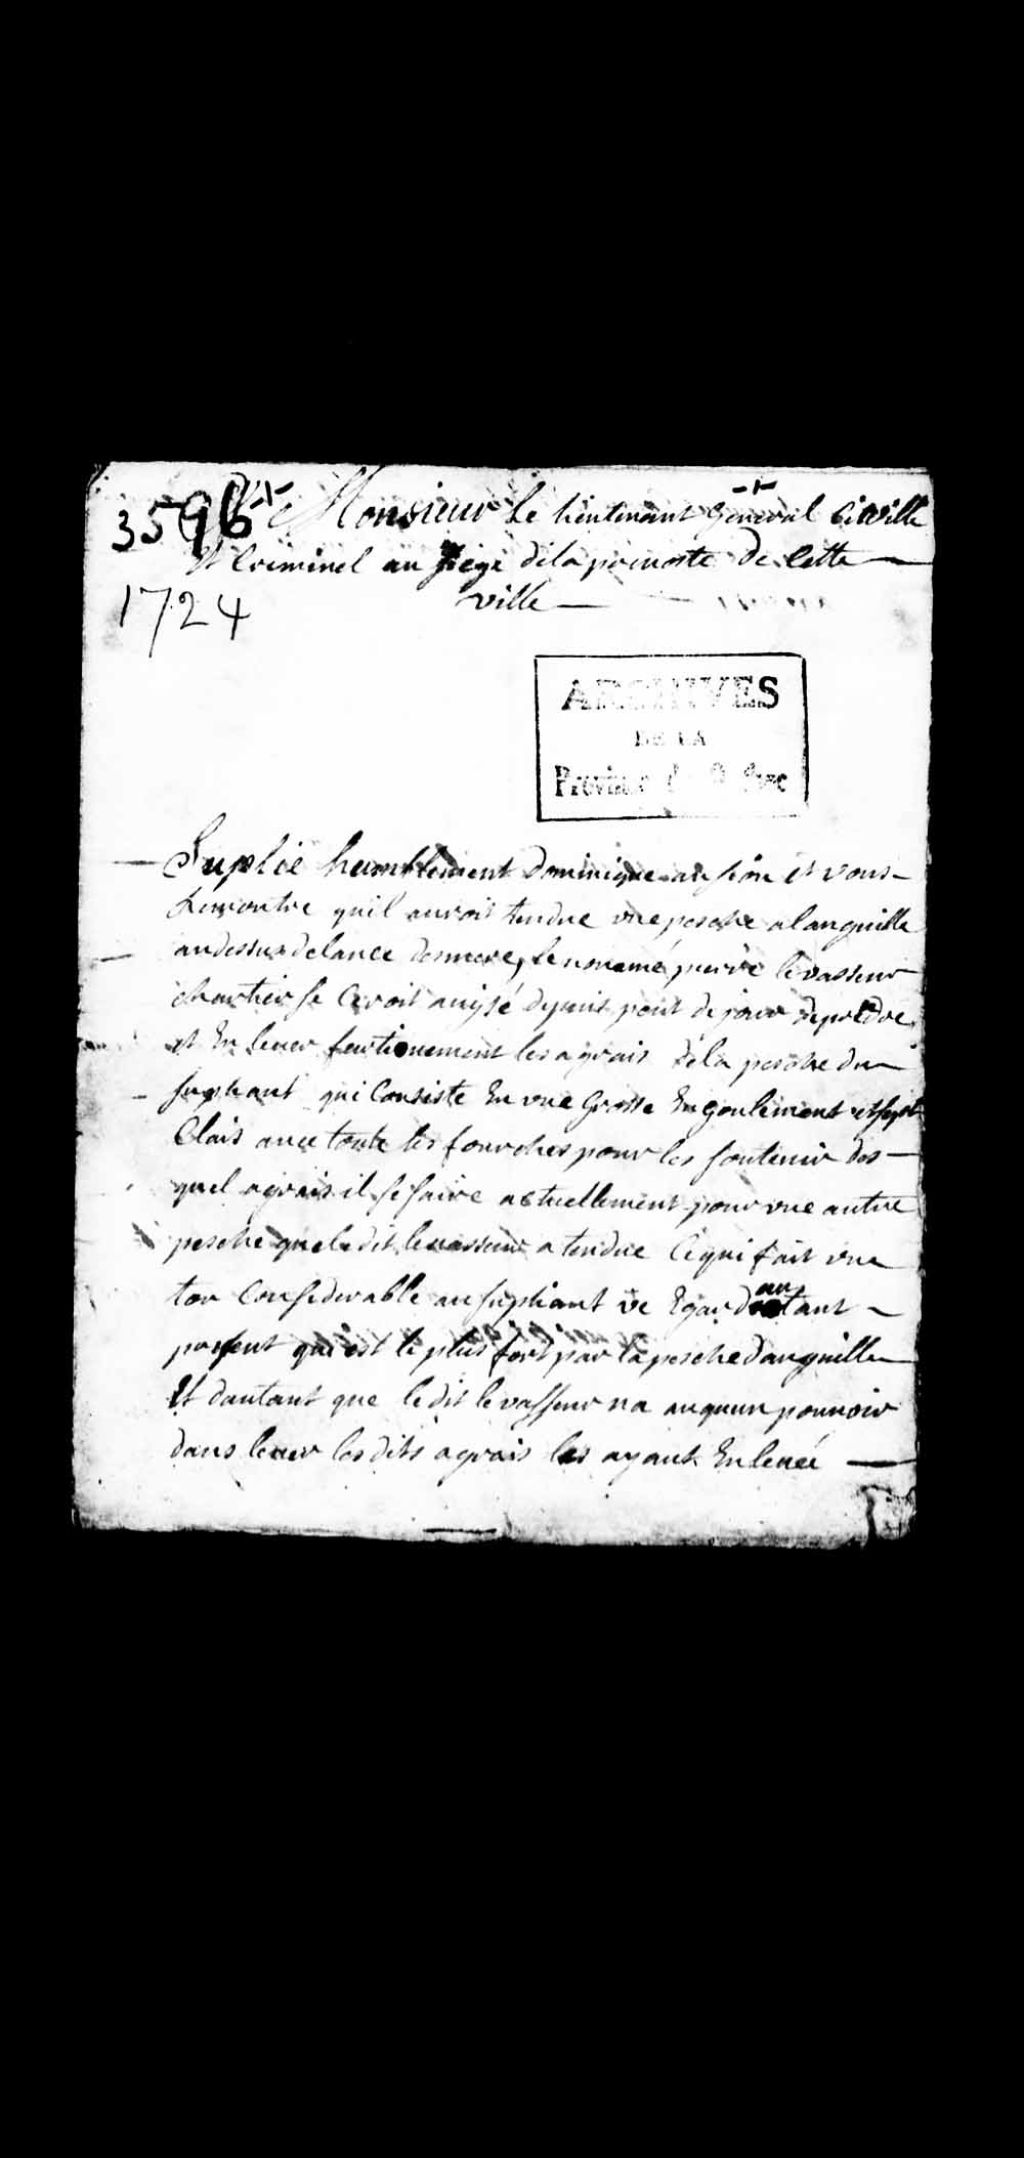 3596
Monsieur Le lieutenant General Civille
Et Criminel au siege dela prevoste De Cette
1724
ville
ARCHIVES
DE LA
Province de Québec
Suplie humblement Dominique et vous
Remontre quil auroit tendue vne pesche alanguille
audessus delance desmere, le nommé pierre levasseur
chartier se Ceroit auisé depuis peut de jour de prèdre
et Enleuer furtiuement les agrais dela pesche du
supliant qui Consiste En vne Grosse Engoulement et sept
Clais auec toute les fourches pour les soutenir des
quel agrais il se saire actuellement pour vne autre
pesche queledit levasseur a tendue Ce qui fait vne
tor Considerable au supliant ve Egard au tant
present qui est le plus fort par la pesche danguille
Et dautant que ledit levasseur na auquun pouuoir
dans leuer les dits agrais les ayant Enleuée